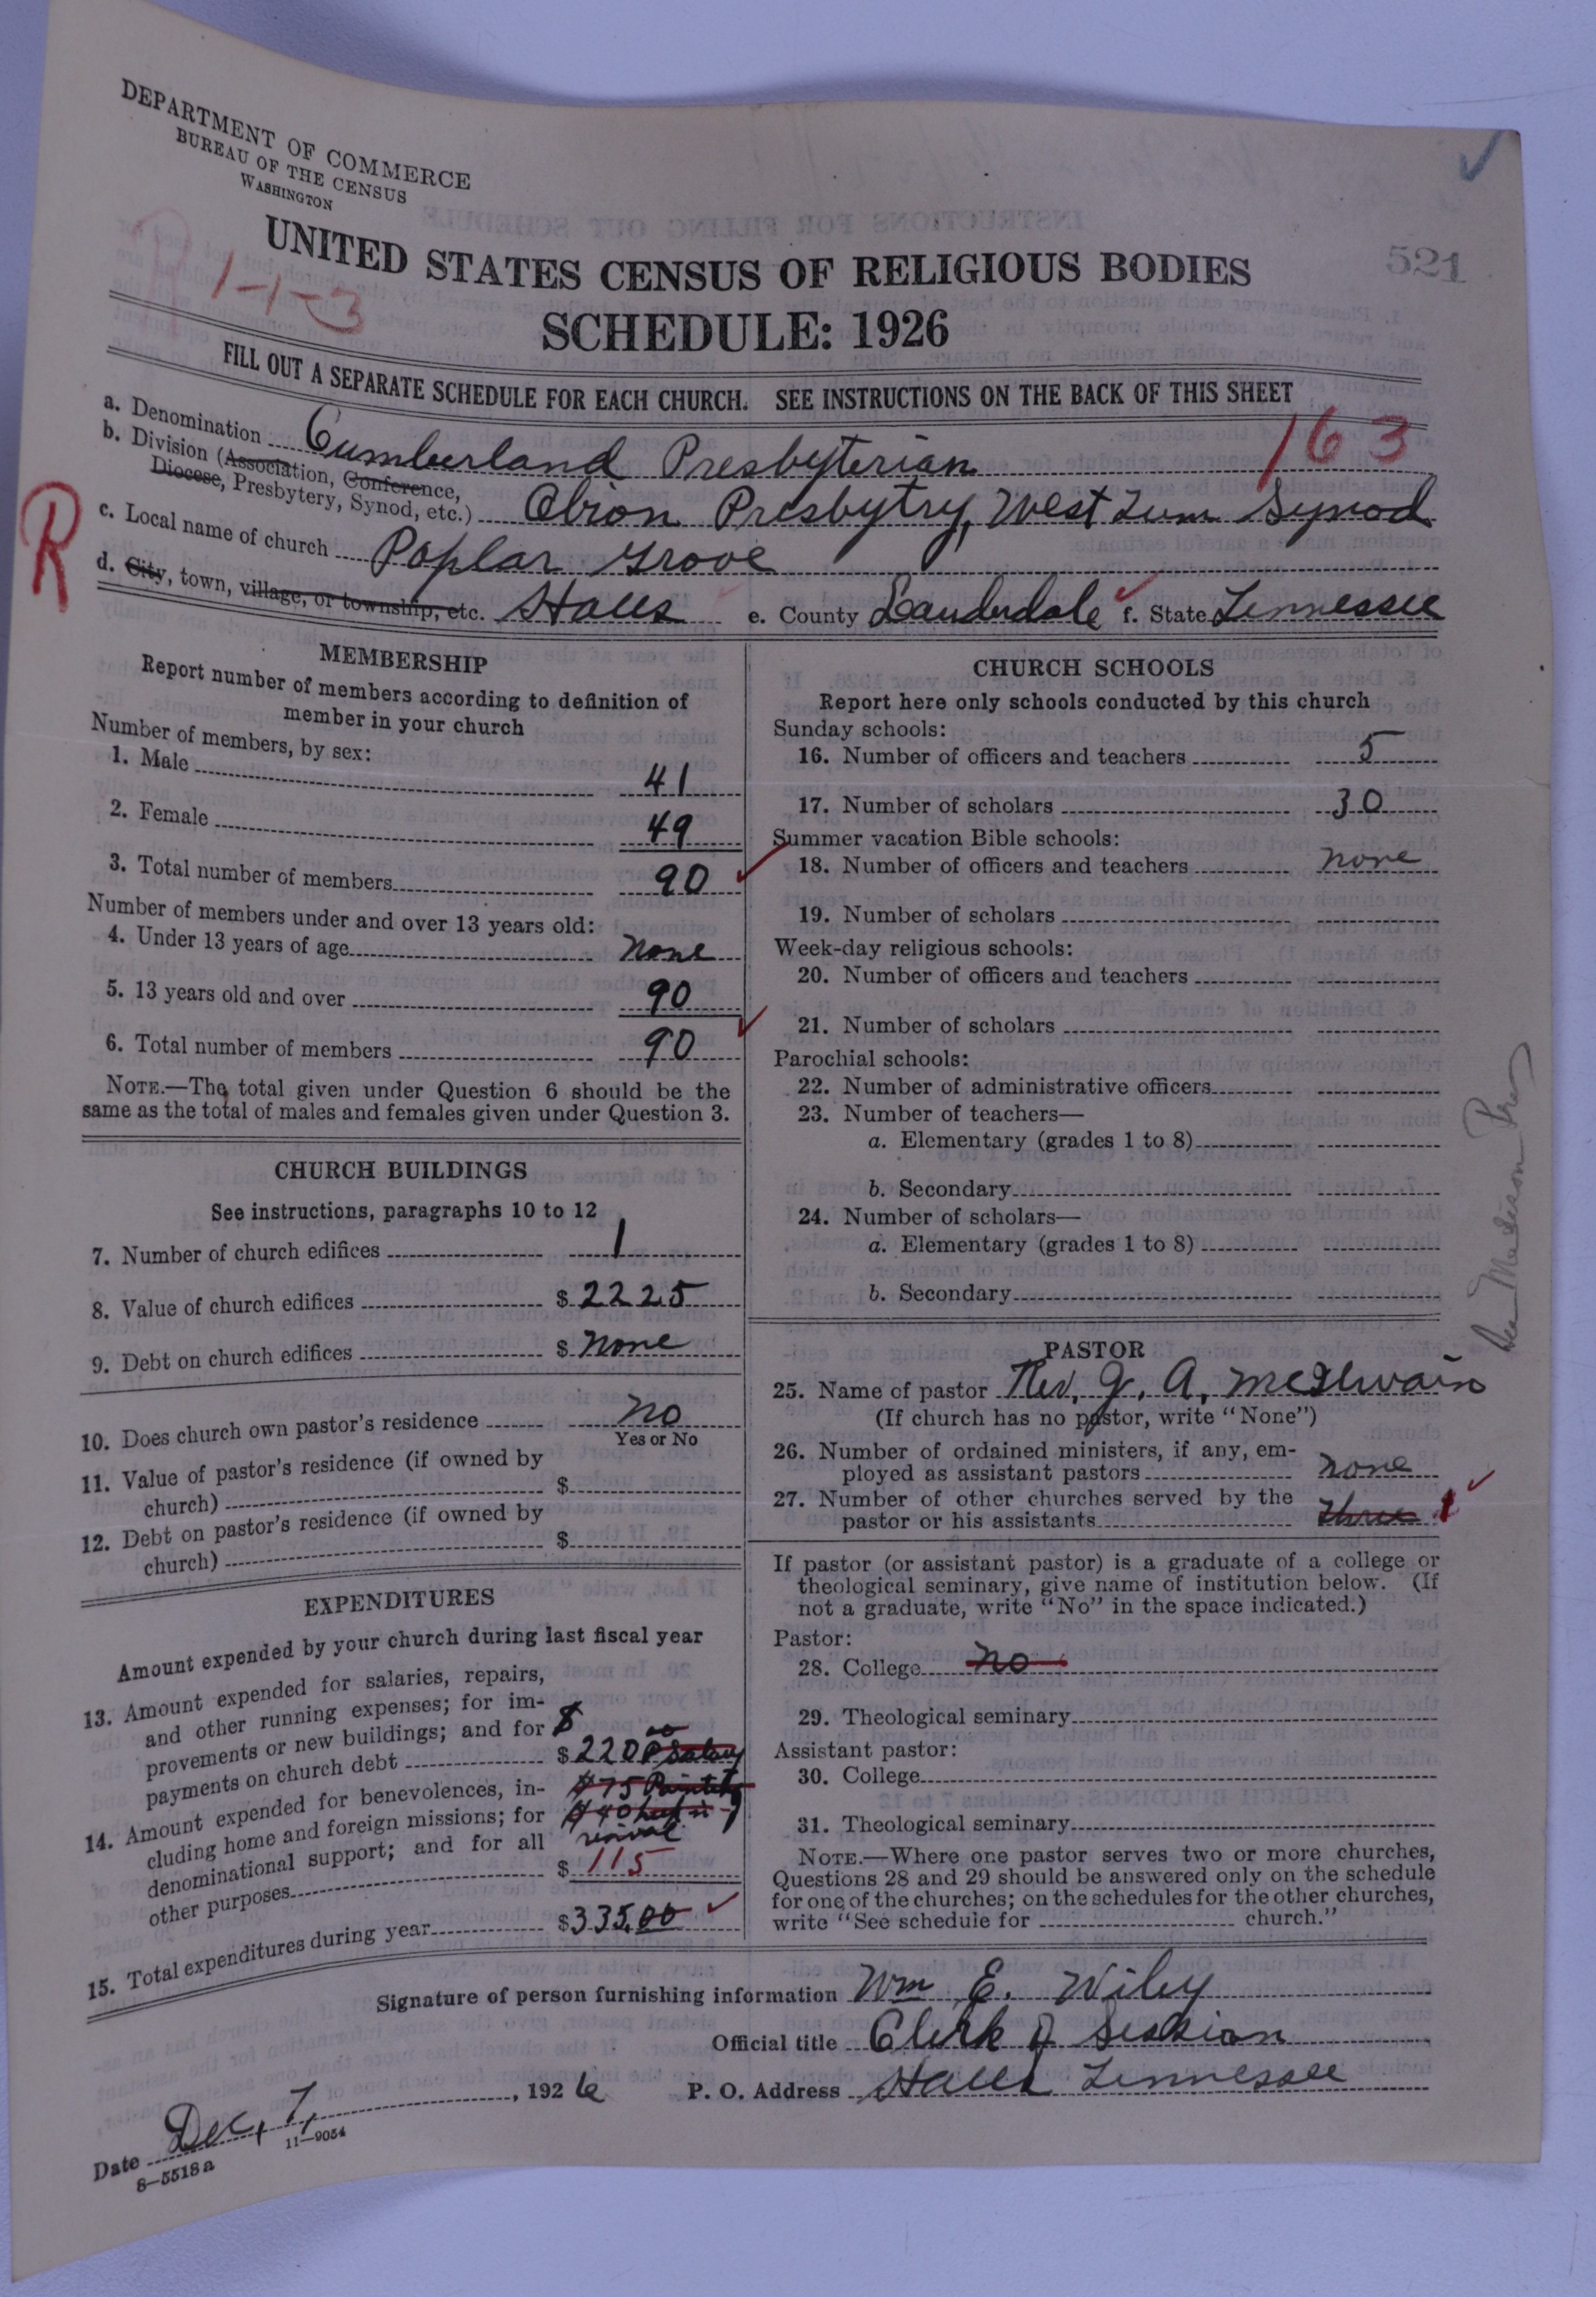 DEPARTMENT OF COMMERCE
BUREAU OF THE CENSUS
WASHINGTON
UNITED STATES CENSUS OF RELIGIOUS BODIES
521
1-1-3
SCHEDULE: 1926
FILL OUT A SEPARATE SCHEDULE FOR EACH CHURCH. SEE INSTRUCTIONS ON THE BACK OF THIS SHEET
163
a. Denomination Cumberland Presbyterian
b. Division (Association, Conference,
Diocese, Presbytery, Synod, etc.) Obion Presbytry, West Tenn Synod
R
c. Local name of church Poplar Grove
d. City, town, village, or township, etc. Halls e. County Lauderdale f. State Tennessee
MEMBERSHIP
Report number of members according to definition of
member in your church
Number of members, by sex:
1. Male 41
2. Female 49
3. Total number of members 90
Number of members under and over 13 years old:
4. Under 13 years of age none
5. 13 years old and over 90
6. Total number of members 90
NOTE.—The total given under Question 6 should be the
same as the total of males and females given under Question 3.
CHURCH BUILDINGS
See instructions, paragraphs 10 to 12
7. Number of church edifices 1
8. Value of church edifices $ 2225
9. Debt on church edifices $ none
10. Does church own pastor's residence no
Yes or No
11. Value of pastor's residence (if owned by
church) $
12. Debt on pastor's residence (if owned by
church) $
EXPENDITURES
Amount expended by your church during last fiscal year
13. Amount expended for salaries, repairs,
and other running expenses; for im-
provements or new buildings; and for $
payments on church debt $ 220 00 Salary
$75 Painting
14. Amount expended for benevolences, in-
cluding home and foreign missions; for $40
denominational support; and for all revival
other purposes $ 115
15. Total expenditures during year $335.00
CHURCH SCHOOLS
Report here only schools conducted by this church
Sunday schools:
16. Number of officers and teachers 5
17. Number of scholars 30
Summer vacation Bible schools:
18. Number of officers and teachers none
19. Number of scholars
Week-day religious schools:
20. Number of officers and teachers
21. Number of scholars
Parochial schools:
22. Number of administrative officers
23. Number of teachers—
a. Elementary (grades 1 to 8)
b. Secondary
24. Number of scholars—
a. Elementary (grades 1 to 8)
b. Secondary
PASTOR
25. Name of pastor Rev. J. A. McIlwain
(If church has no pastor, write "None")
26. Number of ordained ministers, if any, em-
ployed as assistant pastors none
27. Number of other churches served by the
pastor or his assistants three 1
If pastor (or assistant pastor) is a graduate of a college or
theological seminary, give name of institution below. (If
not a graduate, write "No" in the space indicated.)
Pastor:
28. College no
29. Theological seminary
Assistant pastor:
30. College
31. Theological seminary
NOTE.—Where one pastor serves two or more churches,
Questions 28 and 29 should be answered only on the schedule
for one of the churches; on the schedules for the other churches,
write "See schedule for church."
Signature of person furnishing information Wm E. Wiley
Official title Clerk of Session
Date Dec, 7, 1926 P. O. Address Halls Tennessee
11—9054
8—5518 a